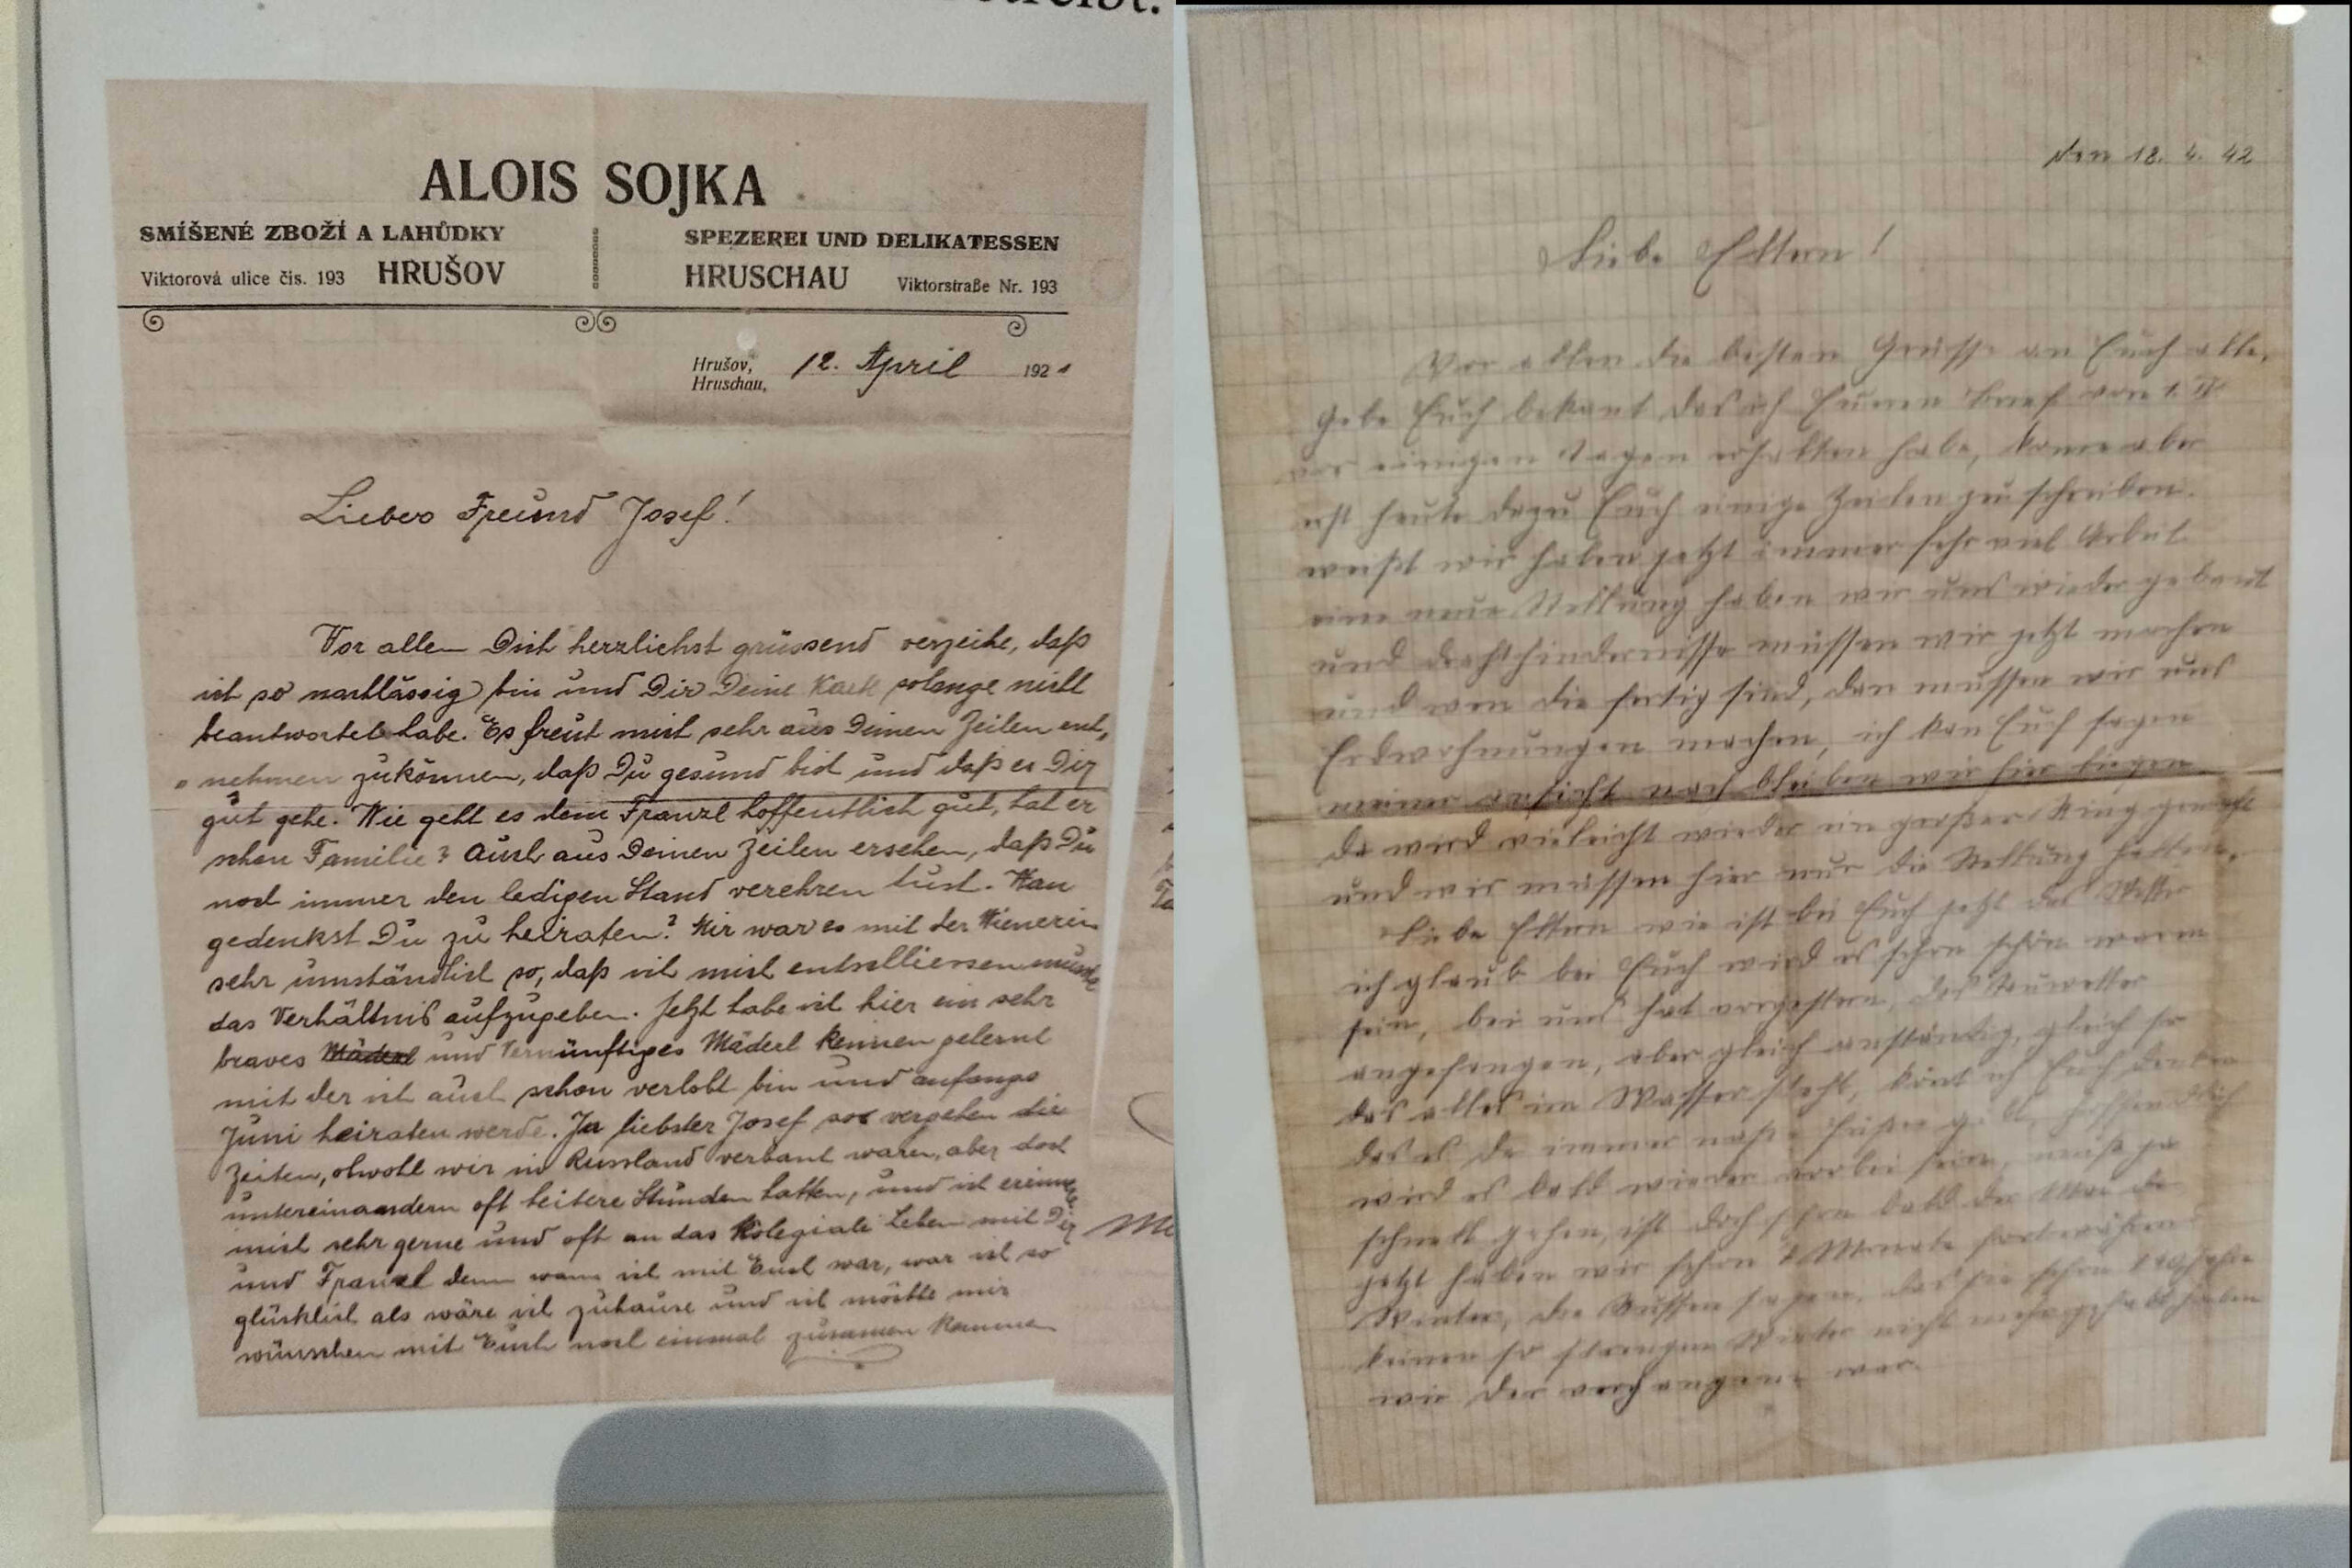 ALOIS SOJKA
SMÍŠENÉ ZBOŽÍ A LAHŮDKY
Viktorová ulice čis. 193 HRUŠOV
SPEZEREI UND DELIKATESSEN
HRUSCHAU Viktorstraße Nr. 193
Hrušov,
Hruschau, 12. April 192
Lieber Freund Josef!
Vor allem Dich herzlichst grüssend verzeihe, daß
ich so nachlässig bin und Dir Deine solange nicht
beantwortet habe. Es freut mich sehr aus Deinen Zeilen ent,
nehmen zukönnen, daß Du gesund bist und daß es Dir
gut gehe. Wie geht es dem Franzl hoffentlich gut, hat er
schon Familie? Auch aus Deinen Zeilen ersehen, daß Du
noch immer den ledigen Stand verehren tust. Wan
gedenkst Du zu heiraten? Mir war es mit der Wienerin
sehr umständlich so, daß ich mich entschliessen musste
das Verhältniß aufzugeben. Jetzt habe ich hier ein sehr
braves und Vernünftiges Mäderl kennen gelernt
mit der ich auch schon verlobt bin und anfangs
Juni heiraten werde. Ja liebster Josef so vergehen die
Zeiten, obwohl wir in Russland verbant waren, aber doch
untereinandern oft heitere Stunden hatten, und ich erinnere
mich sehr gerne und oft an das Kolegiale Leben mit Dir
und Franzl denn wann ich mit Euch war, war ich so
glücklich als wäre ich zuhause und ich möchte mir
wünschen mit Euch noch einmal zusamen kommen
den 18. 4. 42
Liebe Eltern!
Vor allen die besten Grüsse an Euch alle,
gebe Euch bekant das ich Eueren Brief von 1. IV
vor einigen Tagen erhalten habe, kome aber
erst heute dazu Euch einige Zeilen zu schreiben.
weißt wir haben jetzt immer sehr viel Arbeit
eine neue Stellung haben wir uns wieder gebaut
und drahthindernisse müssen wir jetzt machen
und wen die fertig sind, dan müssen wir uns
Erdwohnungen machen, ich kan Euch sagen
meiner ansicht nach bleiben wir hier liegen
da wird vieleicht wieder ein großer Ring gemacht
und wir müssen hier nur die Stellung halten.
Liebe Eltern wie ist bei Euch jetzt das Wetter
ich glaub bei Euch wird es schon schön warm
sein, bei uns hat vorgestern, das Tauwetter
angefangen, aber gleich anständig, gleich so
das alles im Wasser steht, könt ich Euch denken
das es da immer naße füßen gibt, hoffendlich
wird es bald wieder vorbei sein, muß ja
schnell gehen, ist doch schon bald der Mai da
jetzt haben wir schon Monate fortwährend
Winter, die Russen sagen, das sie schon Jahre
keinen so strengen Winter nicht mehr gehabt haben
wie der vergangene war.